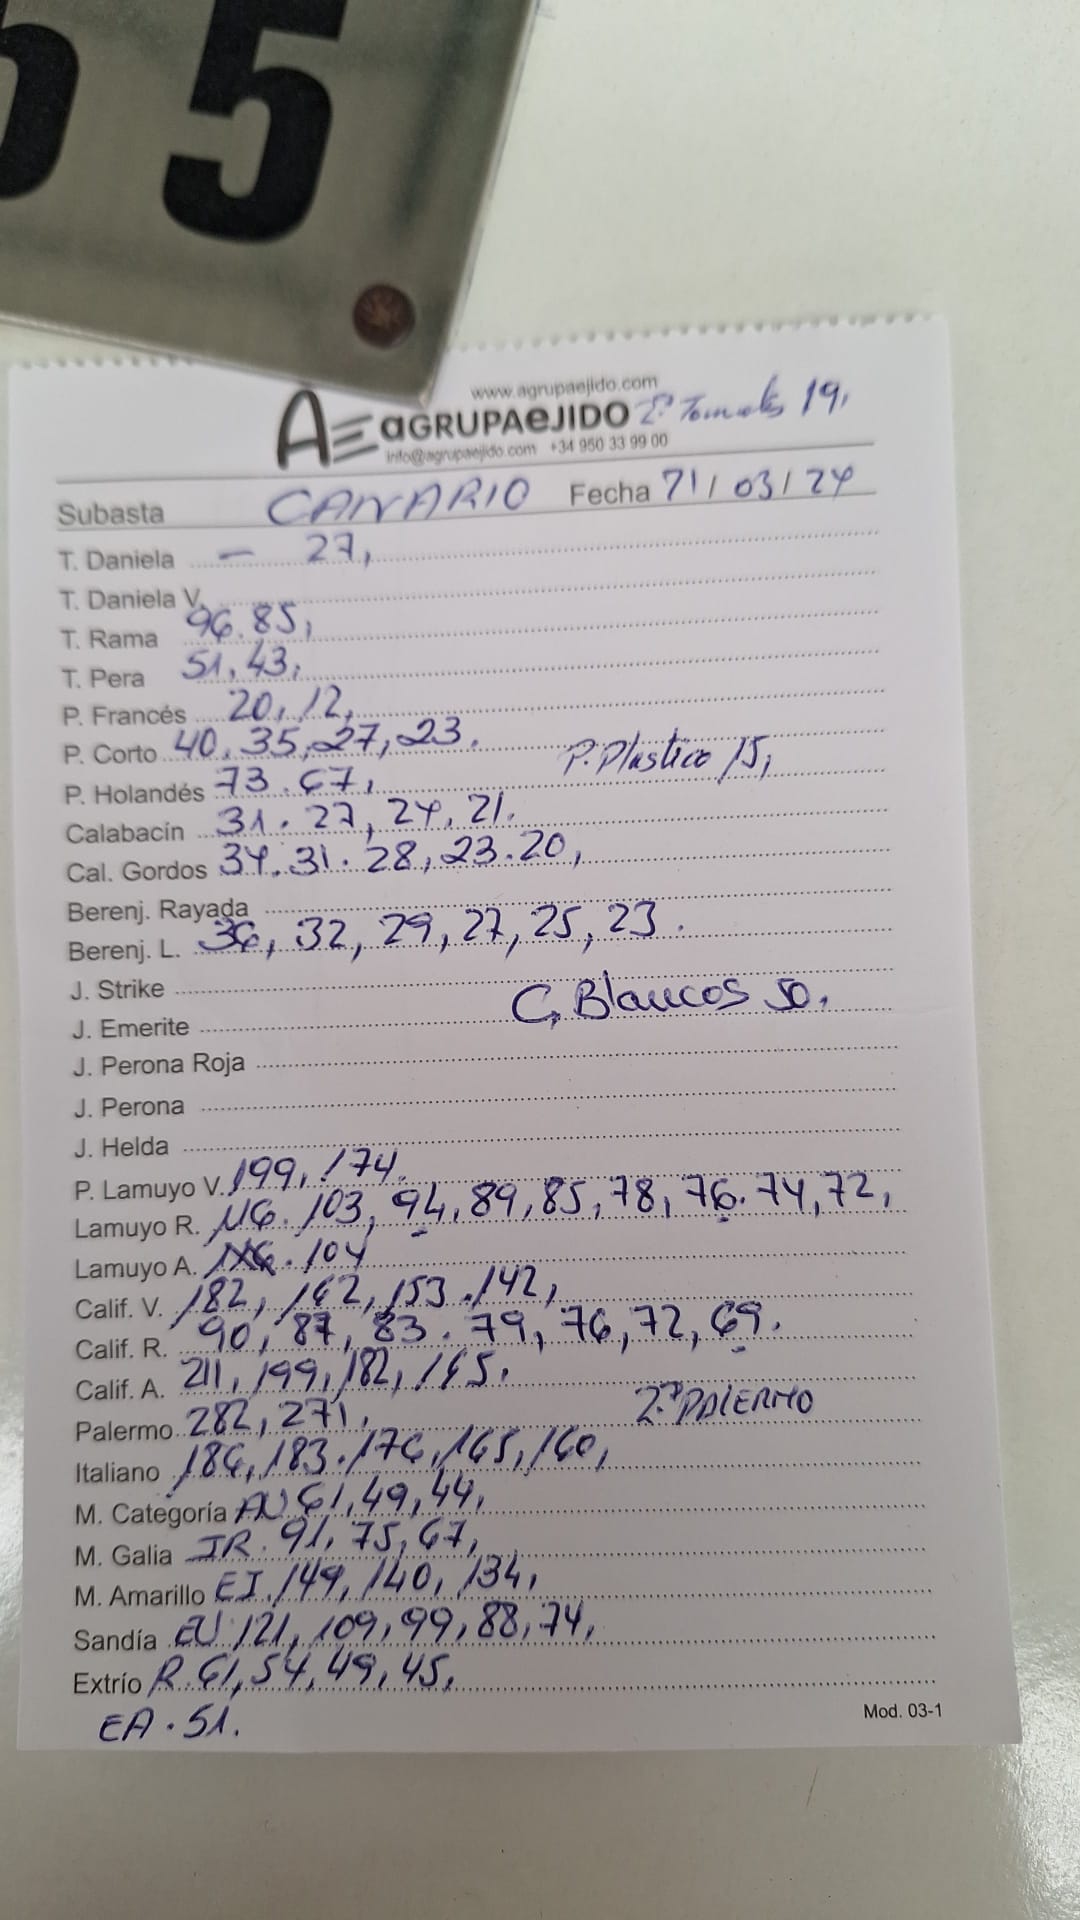 55
www.agrupaejido.com
AE aGRUPAeJIDO 2ª Tomates 19,
info@agrupaejido.com +34 950 33 99 00
Subasta CANARIO Fecha 21/03/24
T. Daniela — 27,
T. Daniela V.
T. Rama 96.85,
T. Pera 51,43,
P. Francés 20,12,
P. Corto 40,35,27,23.
P. Plastico 15,
P. Holandés 73.67,
Calabacín 31.27,24,21.
Cal. Gordos 34.31.28,23.20,
Berenj. Rayada
Berenj. L. 36,32,29,27,25,23.
J. Strike
C, Blancos 50,
J. Emerite
J. Perona Roja
J. Perona
J. Helda
P. Lamuyo V. 199,174.
Lamuyo R. 116.103,94,89,85,78,76.74,72,
Lamuyo A. 104
Calif. V. 182,162,153.142,
Calif. R. 90,87,83.79,76,72,69.
Calif. A. 211,199,182,165.
2ª PALERMO
Palermo 282,271,
Italiano 186,183.176,165,160,
M. Categoría AU 61,49,44,
M. Galia IR.91,75,67,
M. Amarillo EI.149,140,134,
Sandía EU 121,109,99,88,74,
Extrío R.61,54,49,45,
EA.51.
Mod. 03-1